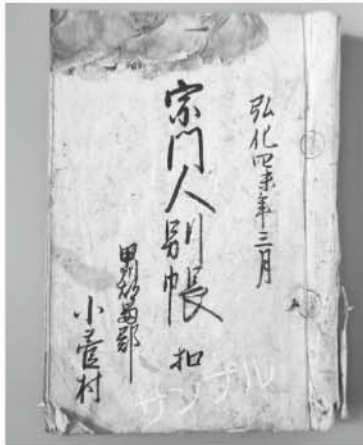 弘化四未年三月
宗門人別帳 扣
甲州都留郡
小菅村
サンプル